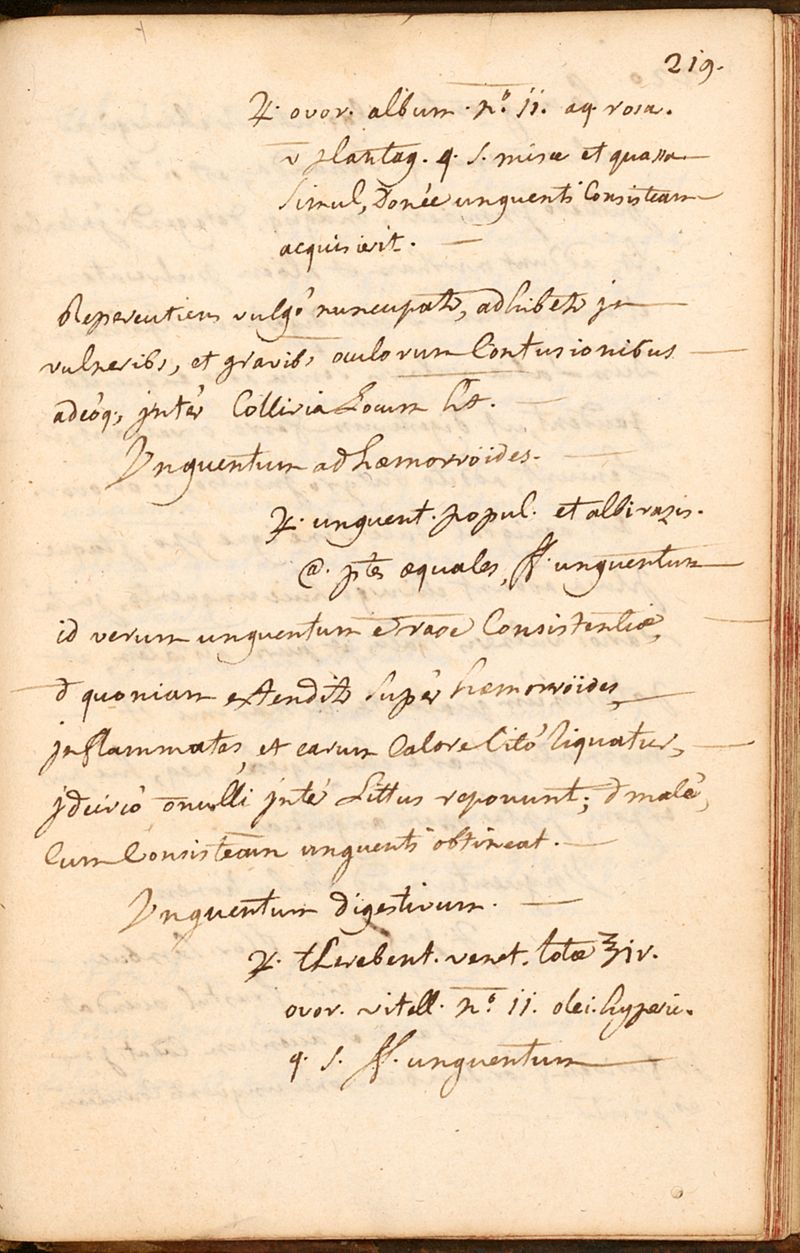 219.
℞. ovor. album. nº. ii. aq. rosa.
v plantag. q. s. misce et quassa
simul, donéc unguenti Consisteam
acquisierit.
Repercutiens vulgó nuncupatr, adhibetr jn
vulneribs, et gravibs oculorum Contusionibus
adeóq; jntér Colliria Locum ht.
Unguentum ad hæmorröides.
℞. unguent. popul. et albi razis.
@. ptes æquales, ff. unguentum
id verum unguentum é raoe Consistentiæ,
d quoniam extenditr supér hæmorröides
jnflammatas, et earum Calore Citó liquatur,
jdcircó onulli jntér Littus reponunt; d malé,
Cum Consisteam unguenti obtineat.
Unguentum digestivum.
℞. therebent. venet. lotæ ℥iv.
ovor. vitell. nº. ii. olei. hyperic.
q. s. ff. unguentum